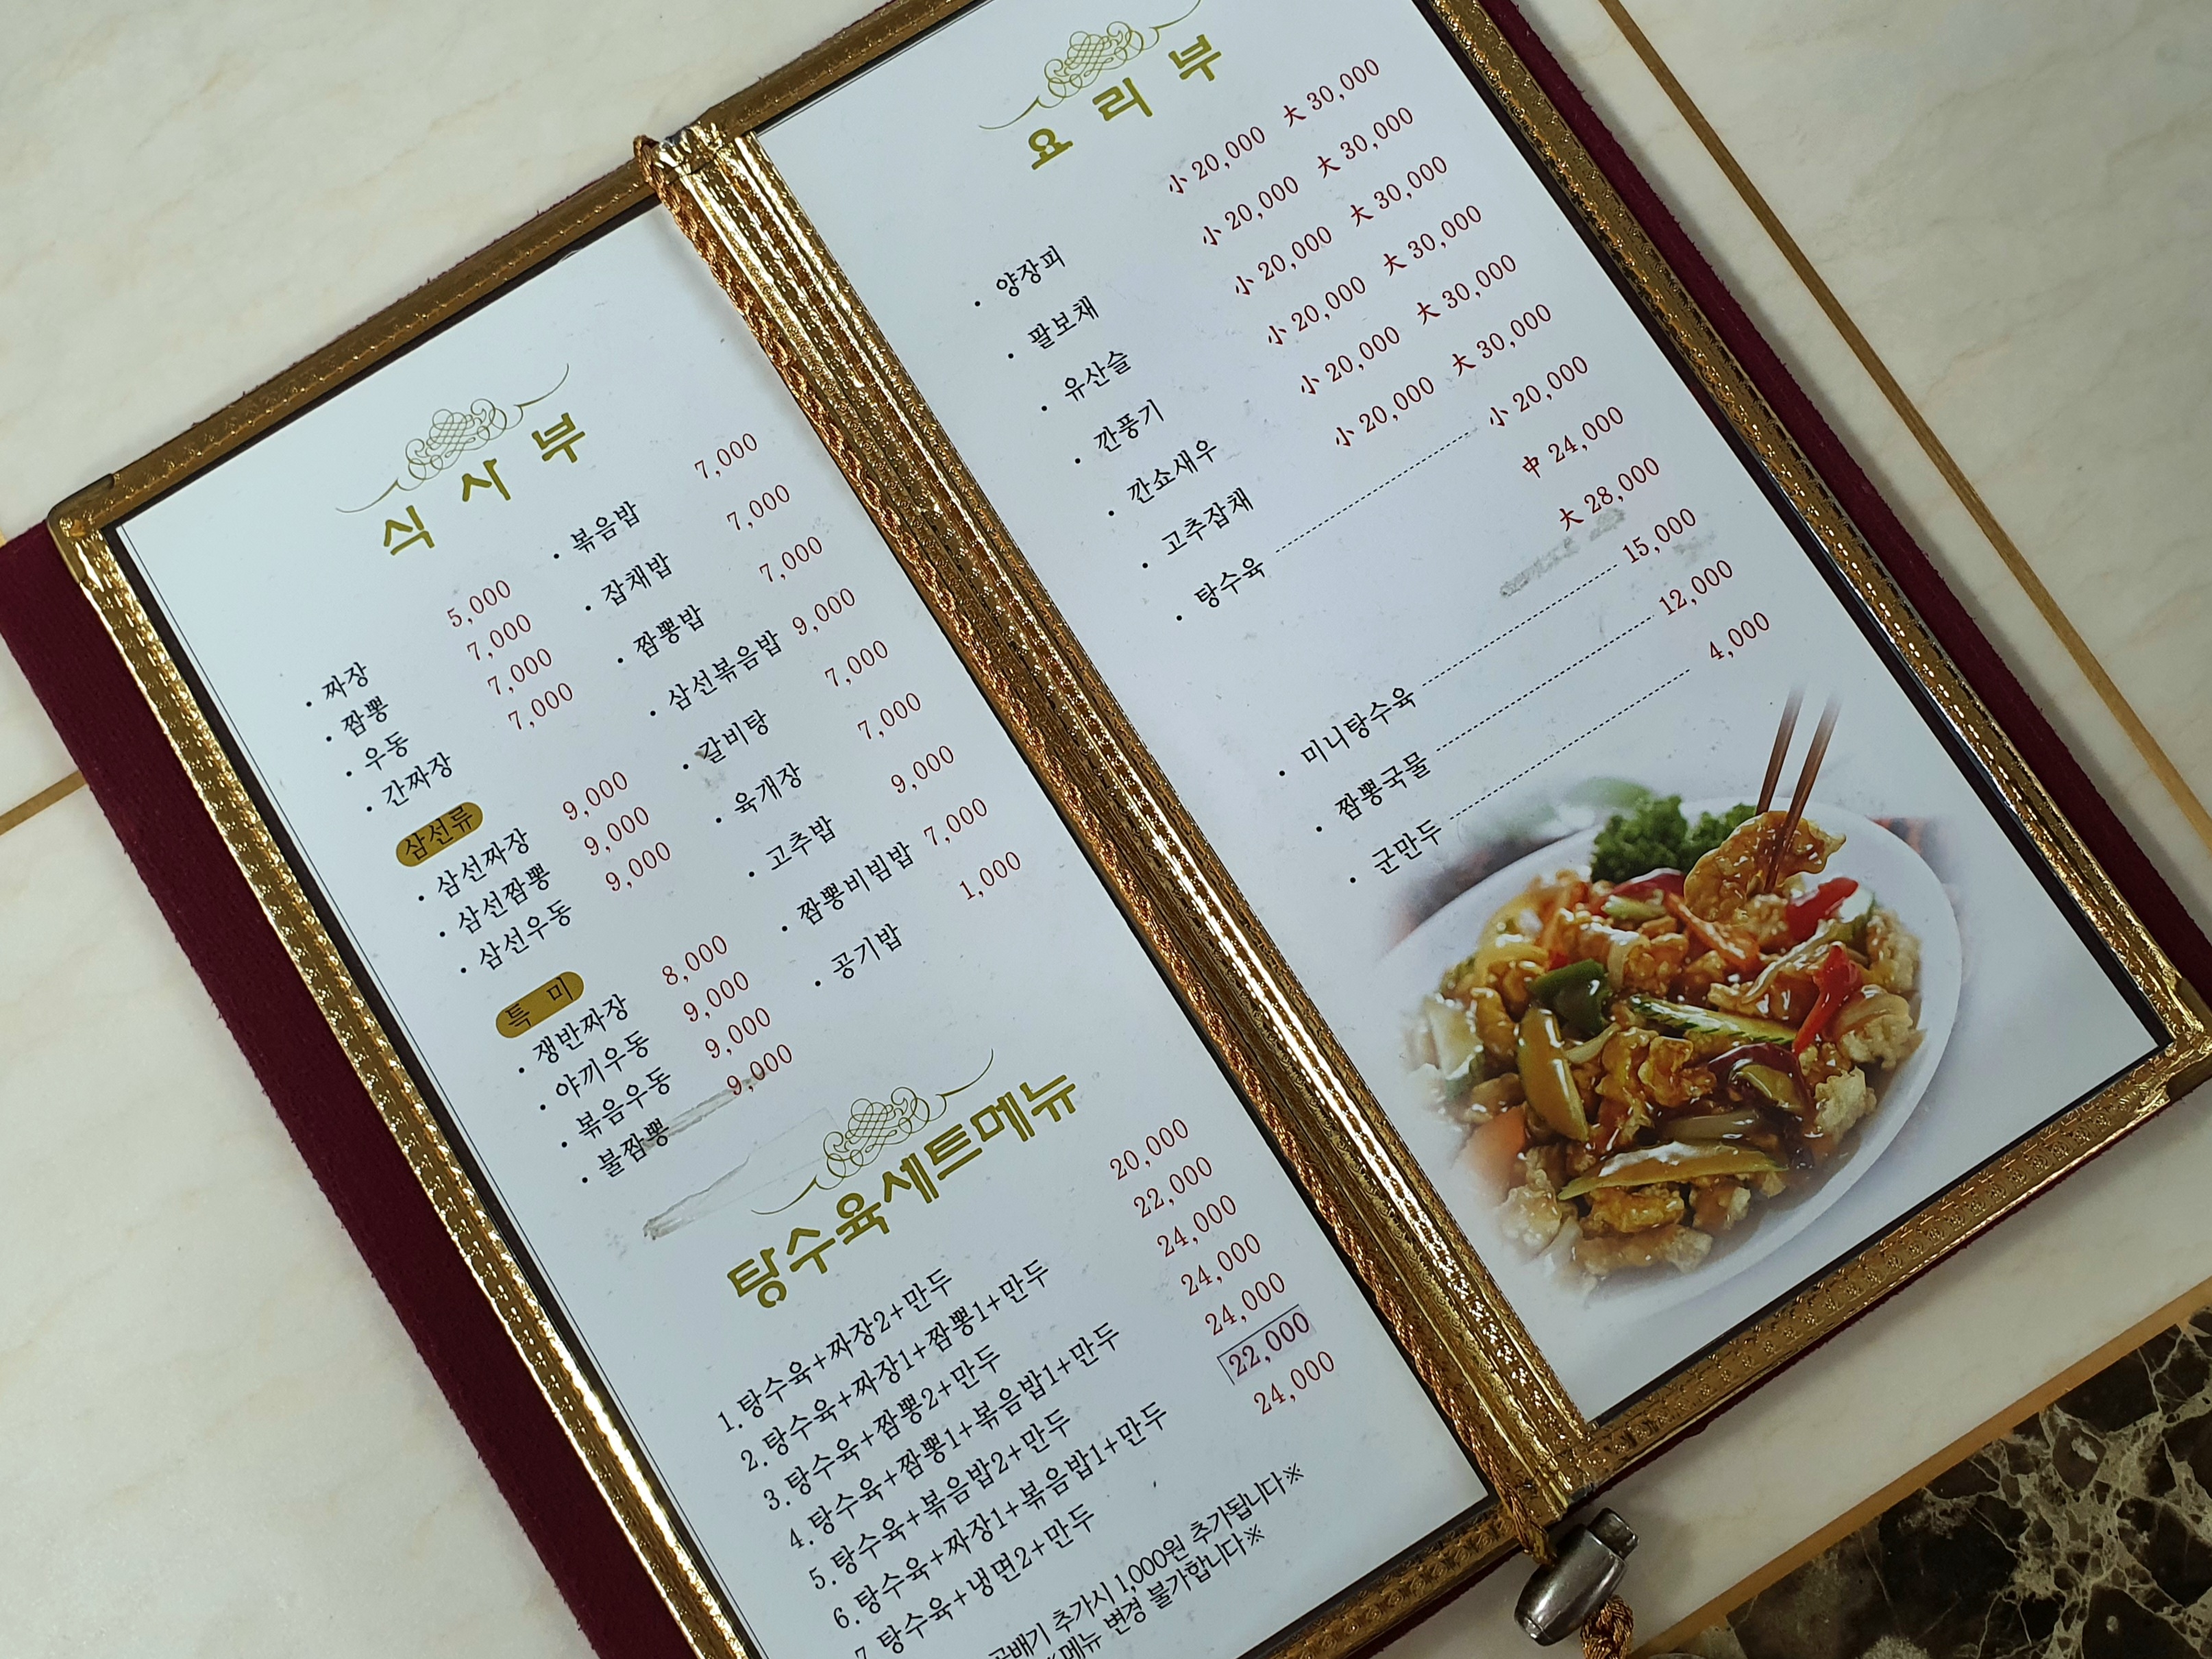 식 사 부
• 짜장 5,000
• 짬뽕 7,000
• 우동 7,000
• 간짜장 7,000
삼선류
• 삼선짜장 9,000
• 삼선짬뽕 9,000
• 삼선우동 9,000
특 미
• 쟁반짜장 8,000
• 야끼우동 9,000
• 볶음우동 9,000
• 불짬뽕 9,000
• 볶음밥 7,000
• 잡채밥 7,000
• 짬뽕밥 7,000
• 삼선볶음밥 9,000
• 갈비탕 7,000
• 육개장 7,000
• 고추밥 9,000
• 짬뽕비빔밥 7,000
• 공기밥 1,000
탕수육세트메뉴
1. 탕수육+짜장2+만두 20,000
2. 탕수육+짜장1+짬뽕1+만두 22,000
3. 탕수육+짬뽕2+만두 24,000
4. 탕수육+짬뽕1+볶음밥1+만두 24,000
5. 탕수육+볶음밥2+만두 24,000
6. 탕수육+짜장1+볶음밥1+만두 22,000
7. 탕수육+냉면2+만두 24,000
곱배기 추가시 1,000원 추가됩니다※
※메뉴 변경 불가합니다※
요 리 부
• 양장피 小 20,000 大 30,000
• 팔보채 小 20,000 大 30,000
• 유산슬 小 20,000 大 30,000
• 깐풍기 小 20,000 大 30,000
• 깐쇼새우 小 20,000 大 30,000
• 고추잡채 小 20,000 大 30,000
• 탕수육 小 20,000
中 24,000
大 28,000
• 미니탕수육 15,000
• 짬뽕국물 12,000
• 군만두 4,000